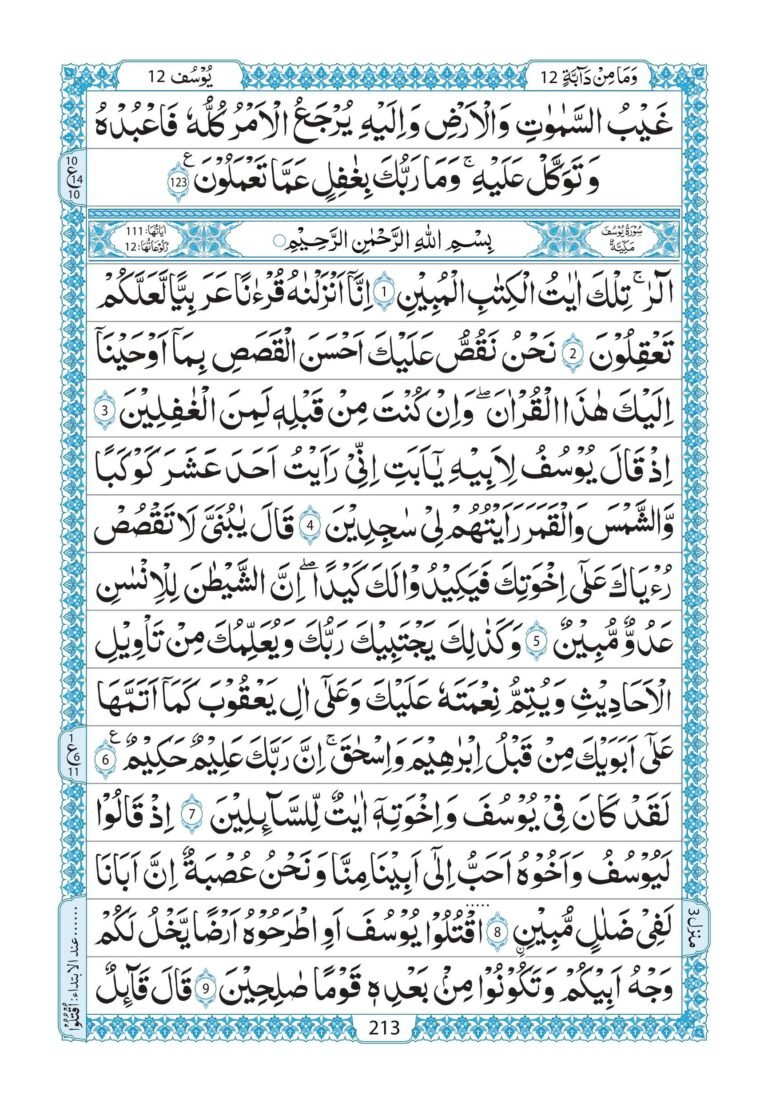 وَمَا مِنْ دَآبَّةٍ 12
یُوْسُف 12
غَیْبُ السَّمٰوٰتِ وَالْاَرْضِ وَاِلَیْهِ یُرْجَعُ الْاَمْرُ كُلُّهٗ فَاعْبُدْهُ
وَ تَوَكَّلْ عَلَیْهِ ۚ وَمَا رَبُّكَ بِغٰفِلٍ عَمَّا تَعْمَلُوْنَ ۧ 123
10 ع 14 10
سُوْرَةُ یُوْسُفَ مَكِّیَّةٌ
بِسْمِ اللهِ الرَّحْمٰنِ الرَّحِیْمِ
اٰیَاتُهَا: 111
رُكُوْعَاتُهَا: 12
الٓرٰ ۚ تِلْكَ اٰیٰتُ الْكِتٰبِ الْمُبِیْنِ 1 اِنَّاۤ اَنْزَلْنٰهُ قُرْءٰنًا عَرَبِیًّا لَّعَلَّكُمْ
تَعْقِلُوْنَ 2 نَحْنُ نَقُصُّ عَلَیْكَ اَحْسَنَ الْقَصَصِ بِمَاۤ اَوْحَیْنَاۤ
اِلَیْكَ هٰذَا الْقُرْاٰنَ ۖ وَاِنْ كُنْتَ مِنْ قَبْلِهٖ لَمِنَ الْغٰفِلِیْنَ 3
اِذْ قَالَ یُوْسُفُ لِاَبِیْهِ یٰۤاَبَتِ اِنِّیْ رَاَیْتُ اَحَدَ عَشَرَ كَوْكَبًا
وَّالشَّمْسَ وَالْقَمَرَ رَاَیْتُهُمْ لِیْ سٰجِدِیْنَ 4 قَالَ یٰبُنَیَّ لَا تَقْصُصْ
رُءْیَاكَ عَلٰۤی اِخْوَتِكَ فَیَكِیْدُوْا لَكَ كَیْدًا ۖ اِنَّ الشَّیْطٰنَ لِلْاِنْسٰنِ
عَدُوٌّ مُّبِیْنٌ 5 وَكَذٰلِكَ یَجْتَبِیْكَ رَبُّكَ وَیُعَلِّمُكَ مِنْ تَاْوِیْلِ
الْاَحَادِیْثِ وَیُتِمُّ نِعْمَتَهٗ عَلَیْكَ وَعَلٰۤی اٰلِ یَعْقُوْبَ كَمَاۤ اَتَمَّهَا
عَلٰۤی اَبَوَیْكَ مِنْ قَبْلُ اِبْرٰهِیْمَ وَاِسْحٰقَ ۚ اِنَّ رَبَّكَ عَلِیْمٌ حَكِیْمٌ ۧ 6
1 ع 6 11
لَقَدْ كَانَ فِیْ یُوْسُفَ وَاِخْوَتِهٖۤ اٰیٰتٌ لِّلسَّآىِٕلِیْنَ 7 اِذْ قَالُوْا
لَیُوْسُفُ وَاَخُوْهُ اَحَبُّ اِلٰۤی اَبِیْنَا مِنَّا وَنَحْنُ عُصْبَةٌ ۖ اِنَّ اَبَانَا
لَفِیْ ضَلٰلٍ مُّبِیْنِ 8 اقْتُلُوْا یُوْسُفَ اَوِ اطْرَحُوْهُ اَرْضًا یَّخْلُ لَكُمْ
وَجْهُ اَبِیْكُمْ وَتَكُوْنُوْا مِنْۢ بَعْدِهٖ قَوْمًا صٰلِحِیْنَ 9 قَالَ قَآىِٕلٌ
منزل 3
عند الابتداء: اُقْتُلُوْا
213